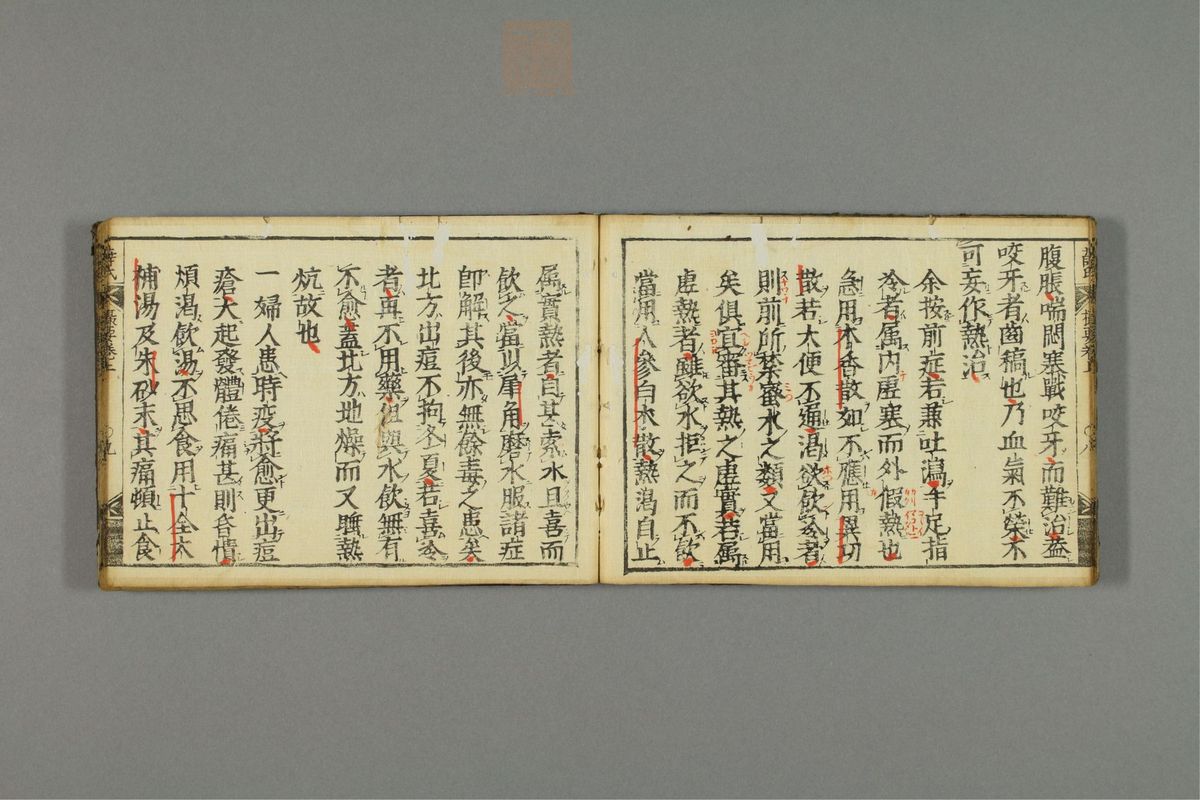 腹脹喘悶塞戰咬牙而難治蓋
咬牙者齒槁也乃血氣不榮不
可妄作熱治
余按前症若兼吐瀉手足指
冷者属内虚寒而外假熱也
急用木香散如不應用異功
散若大便不通渇欲飲冷者
則前所禁蜜水之類又當用
矣俱宜審其熱之虚實若属
虚熱者雖欲水拒之而不飲
當用人參白朮散熱渇自止
属實熱者自其索水且喜而
飲之當以犀角磨水服諸症
即解其後亦無餘毒之患矣
北方出痘不拘冬夏若喜冷
者再不用藥但與水飲無有
不愈蓋北方地燥而又睡熱
炕故也
一婦人患時疫將愈更出痘
瘡大起發體倦痛甚則昏憒
煩渇飲湯不思食用十全大
補湯及朱砂末其痛頓止食